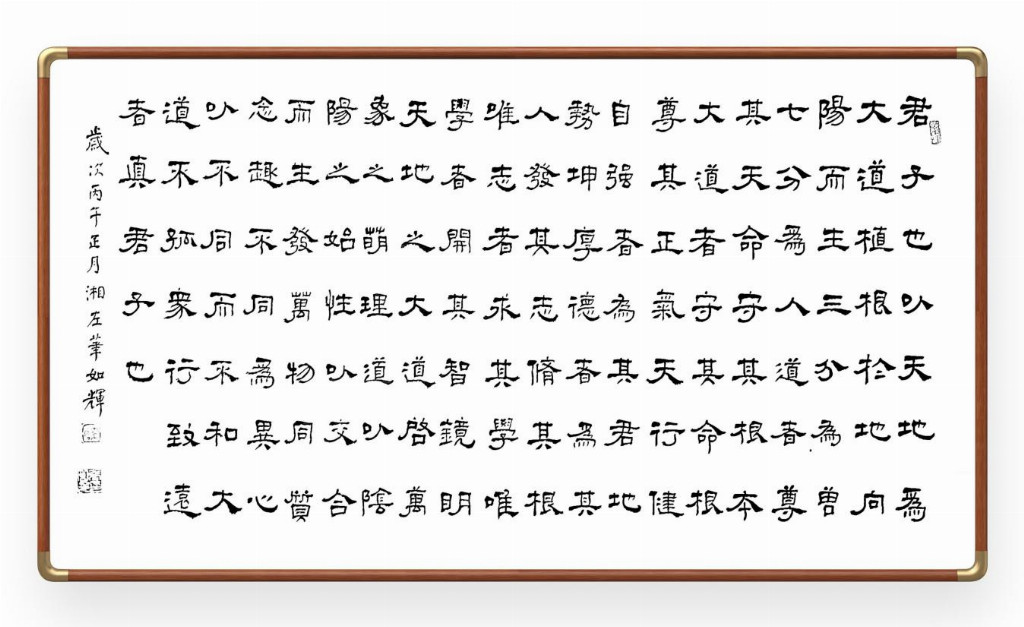 君子也以天地為
大道植根於地向
陽而生三分為曽
七分為人道者尊
其天命守其根本
大道者守其命根
尊其正氣天行健
自强者為其君地
勢坤厚德者為其
人發其志脩其根
唯志者求其學唯
學者開其智鏡明
天地之大道啓萬
象之萌理道以陰
陽之始性以交合
而生發萬物同質
念趣不同為異心
以不同而不和大
道不孤衆行致遠
者真君子也
歲次丙午正月湘左華如輝